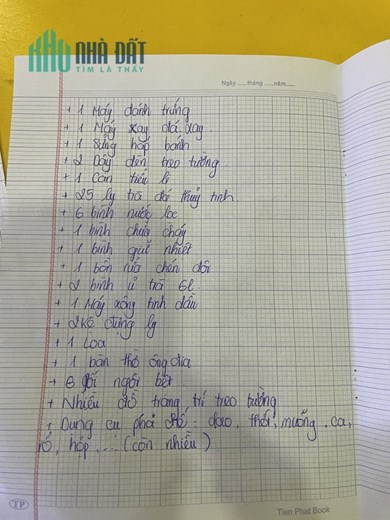 KHO NHÀ ĐẤT
TÌM LÀ THẤY
Ngày tháng năm
+ 1 Máy đánh trứng
+ 1 Máy xay đá xay
+ 1 Sửng hấp bánh
+ 2 Dây đèn treo tường
+ 1 Cân tiểu li
+ 25 ly trà đá thuỷ tinh
+ 6 bình nước lọc
+ 1 bình chữa cháy
+ 1 bình giữ nhiệt
+ 1 bồn rửa chén đôi
+ 2 bình ủ trà 6l
+ 1 Máy xông tinh dầu
+ 2 kệ đựng ly
+ 1 Loa
+ 1 bàn thờ ông địa
+ 6 gối ngồi bệt
+ Nhiều đồ trang trí treo tường
+ Dụng cụ pha đồ: dao, thớt, muỗng, ca,
rổ, hộp,... (còn nhiều)
TP
Tien Phat Book